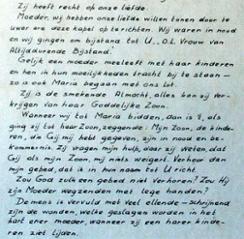 Zij heeft recht op onze liefde.
Moeder, wij hebben onze liefde willen tonen door te
Uwer ere deze kapel op te richten. Wij waren in nood
en wij gingen om bijstand tot U, O.L. Vrouw van
Altijddurende Bijstand.
Gelijk een moeder meeleeft met haar kinderen
en hen in hun moeilijkheden tracht bij te staan –
zo is ook Maria begaan met ons lot.
Zij is de smekende Almacht. Alles kan zij ver-
krijgen van haar Goddelijke Zoon.
Wanneer wij tot Maria bidden, dan is 't, als
ging zij tot haar Zoon, zeggende: Mijn Zoon, de kinde-
ren, die Gij mij hebt gegeven, zijn in nood en be-
kommernis. Zij vragen mijn hulp, waar zij weten, dat
Gij als mijn Zoon, mij niets weigert. Verhoor dan
mijn gebed, dat ik in hun naam tot U richt.
Zou God zulk een gebed niet verhoren? Zou Hij
zijn Moeder wegzenden met lege handen?
De mens is vervuld met veel ellende – schrijnend
zijn de wonden, welke geslagen worden in het
hart ener moeder, wanneer zij een harer kinde-
ren ziet lijden.